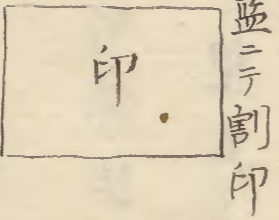 監ニテ割印
印